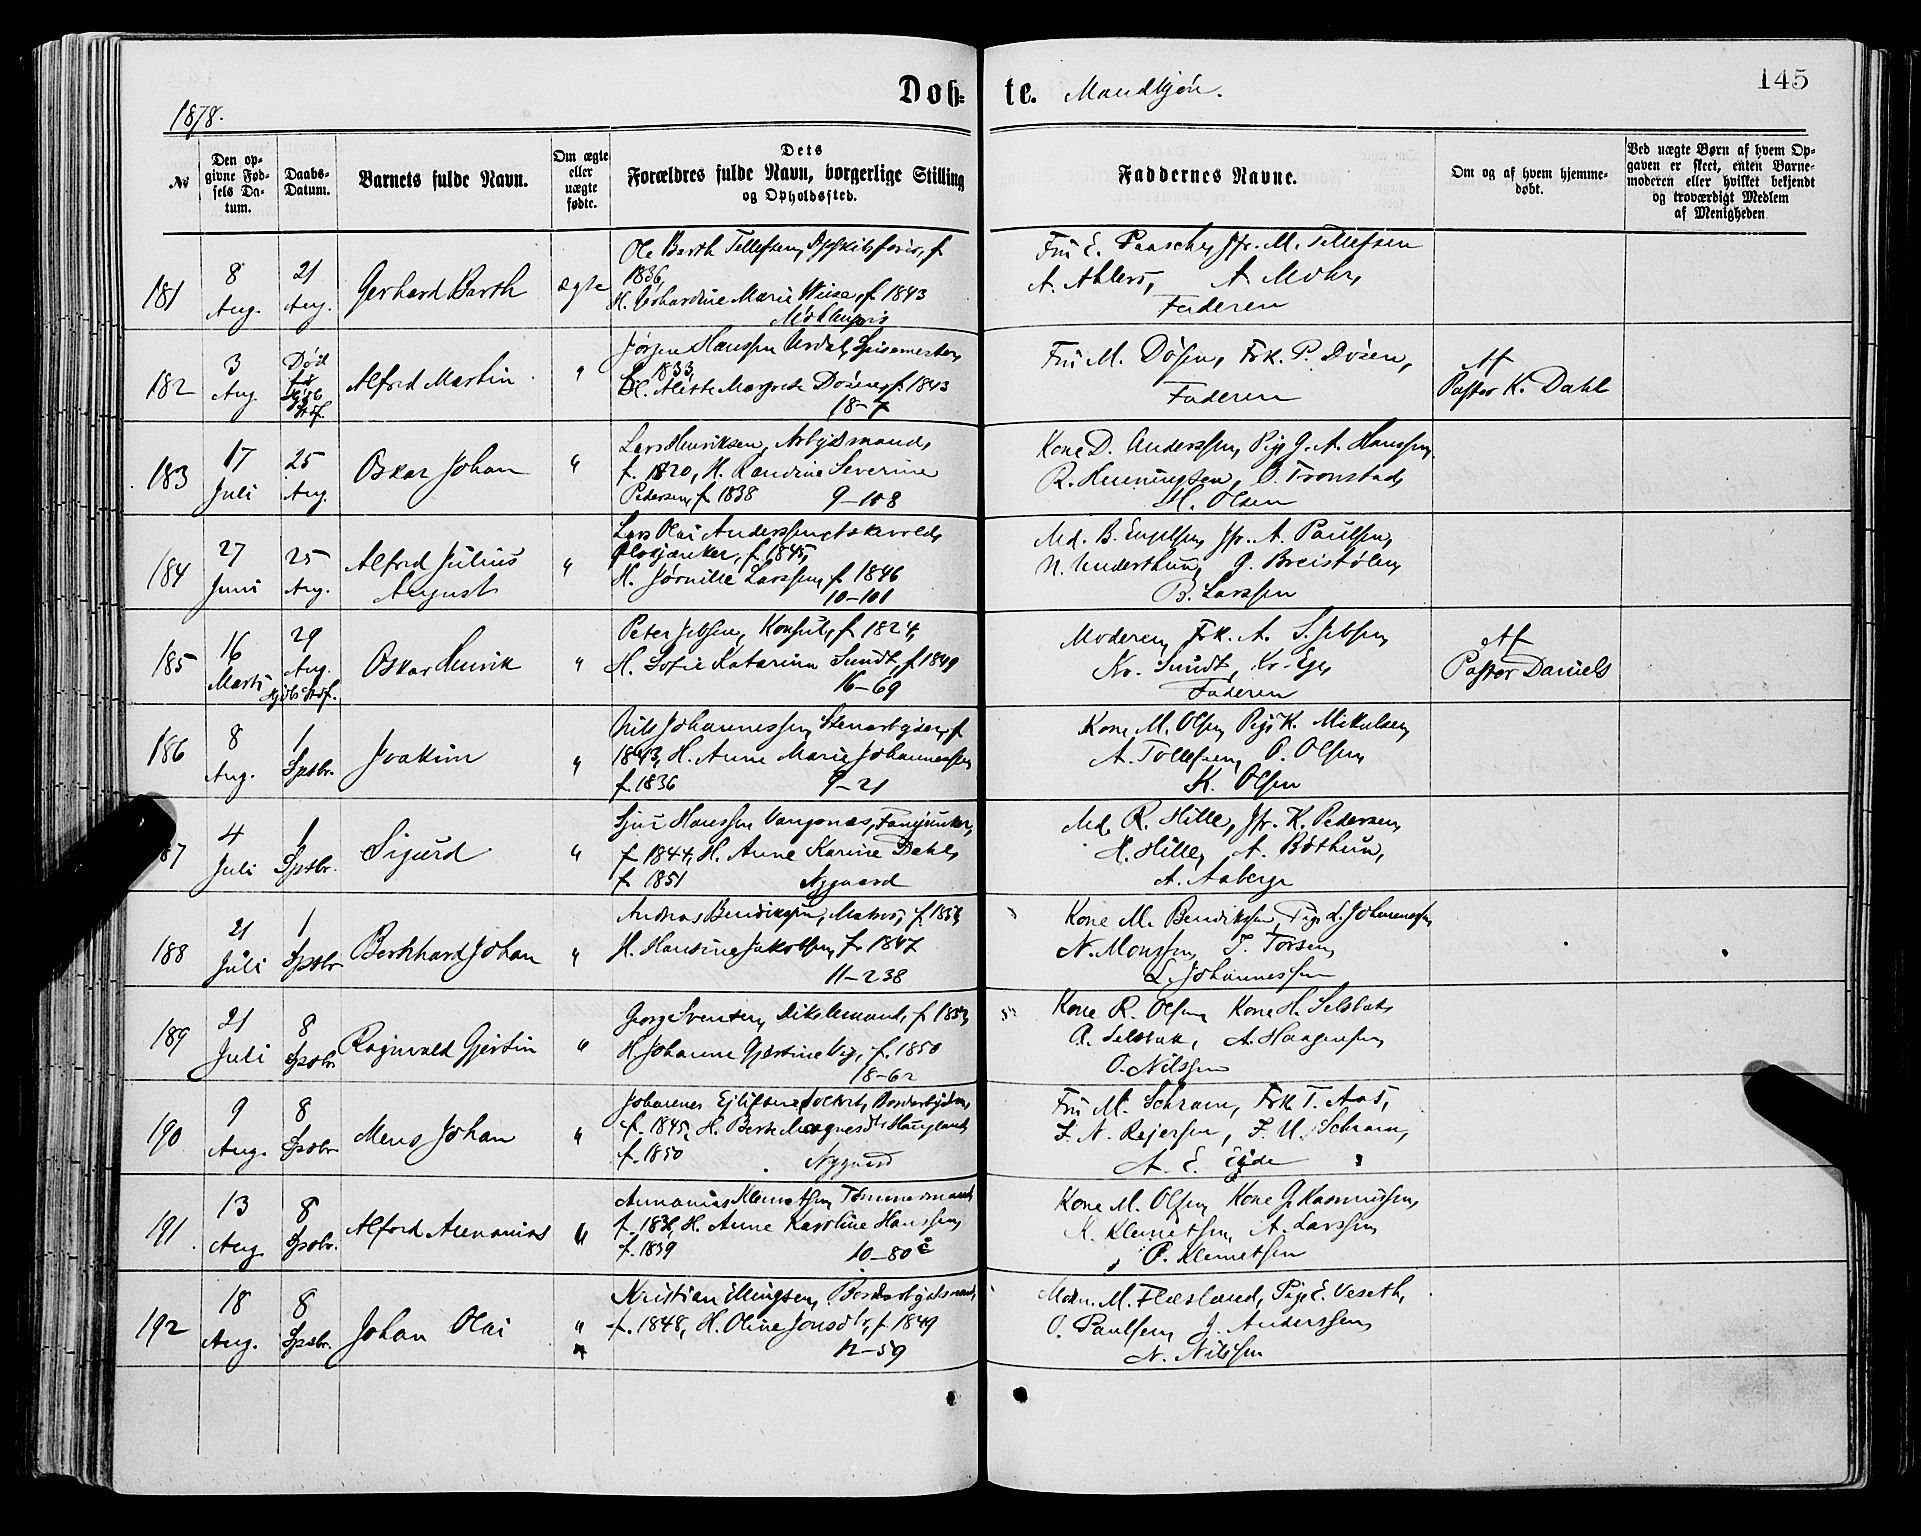 Døb- te. Mandkjøn.
145
1878.
No
Den op-
givne Fød-
sels Da-
tum.
Daabs-
Datum.
Barnets fulde Navn.
Om ægte
eller
uægte
fødte.
Dets
Forældres fulde Navn, borgerlige Stilling
og Opholdssted.
Faddernes Navne.
Om og af hvem hjemme-
døbt.
Ved uægte Børn af hvem Op-
gaven er skeet, enten Barne-
moderen eller hvilket bekjendt
og troværdigt Medlem
af Menigheden
181
8
Aug.
21
Aug.
Gerhard Barth
ægte
Ole Barth Tellefsen, f
1836,
H. Gerhardine Marie Wiese, f 1843
Fru E. Paasche, Jfr. M. Tellefsen
A. Ahlers, A Mohr,
Faderen
182
3
Aug.
Død
Alfred Martin
"
Jørgen Hanssen Urdal, Spisemester,
f. 1833,
H. Alette Margrete Døsen, f. 1843
18-7
Fru M. Døsen, Frk. P. Døsen,
Faderen
Af
Pastor K. Dahl
183
17
Juli
25
Aug.
Oskar Johan
"
Lars Henriksen, Arbejdsmand,
f. 1820, H. Randine Severine
Pedersen, f 1838 9-108
Kone D. Anderssen, Pige J. A. Hanssen,
R. Henningsen, O. Tronstad,
H. Olsen
184
27
Juni
25
Aug.
Alfred Julius
August
"
Lars Olai Anderssen Askevold,
f. 1845,
H. Jørnille Larssen, f 1846
10-101
Md. B. Engelsen, Jfr. A. Paulsen,
N. Underthun, G. Breistølen,
B. Larssen
185
16
Marts
29
Aug.
Oskar Henrik
"
Peter Jebsen, Konsul, f 1824,
H. Sofie Katarina Sundt, f. 1849
16-69
Moderen, Frk. A. S. Jebsen,
Kr. Sundt, Kr. Ege,
Faderen
Af
Pastor Daniels
186
8
Aug.
1
Sptbr.
Joakim
"
Nils Johannessen, Stenarbejder, f
1843, H. Anne Marie Johannessen,
f. 1836 9-21
Kone M. Olsen, Pige K. Mikalsen,
A. Tollefsen, O. Olsen,
K. Olsen
187
4
Juli
1
Sptbr.
Sigurd
"
Sjur Hanssen Vangsnæs, Fanejunker,
f 1844, H. Anne Karine Dahl,
f 1851 Nygaard
Md. R. Hille, Jfr. K. Pedersen,
H. Hille, A. Bøthun,
A. Aaberge
188
21
Juli
1
Sptbr
Bernhard Johan
"
Andreas Bendiksen, Matros,
H. Hansine Jakobsen, f. 1847
11-238
Kone M. Bendiksen, Pige L. Johannessen,
N. Monssen, T. Torsen,
L. Johannessen
189
21
Juli
8
Sptbr
Ragnvald Gjertin
"
Georg Svensen, Dikslemand,
H. Johanne Gjertine Vig, f. 1850
18-62
Kone R. Olsen, Kone H. Selsbak,
A. Selsbak, A. Haagensen,
O. Nilssen
190
9
Aug.
8
Sptbr
Mens Johan
"
Johannes Bordarbejder,
f. 1845, H. Berte Magnesdtr Haugland,
f. 1850 Nygaard
Fru M. Schram, Frk T. Aas,
F. N. Rejersen, F. U. Schram,
A. E. Eide
191
13
Aug.
8
Sptbr.
Alfred Annanias
"
Annanias Klemetsen, Tømmermand
H. Anne Karoline Hanssen,
f. 1839 10-80 c
Kone M. Olsen, Kone G. Rasmussen,
K. Klemetsen, A. Larssen,
P. Klemetsen
192
18
Aug.
8
Sptbr.
Johan Olai
"
Kristian Bordarbejdsmand,
f. 1848, H. Oline Jonsdtr, f 1849
12-59
Mdm. M. Flesland, Pige E. Veseth,
O. Paulsen, J. Anderssen,
N. Nilssen